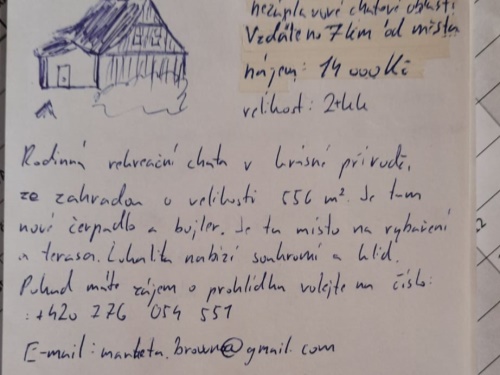 nezáplavové chatové oblasti
Vzdáleno 7 km od města
nájem: 14 000Kč
velikost: 2+kk
Rodinná rekreační chata v krásné přírodě,
ze zahradou o velikosti 556 m². Je tam
nové čerpadlo a bojler. Je tu místo na rybaření
a terasa. Lokalita nabízí soukromí a klid.
Pokud máte zájem o prohlídku volejte na číslo:
: +420 776 054 551
E-mail: marketa.brown@gmail.com